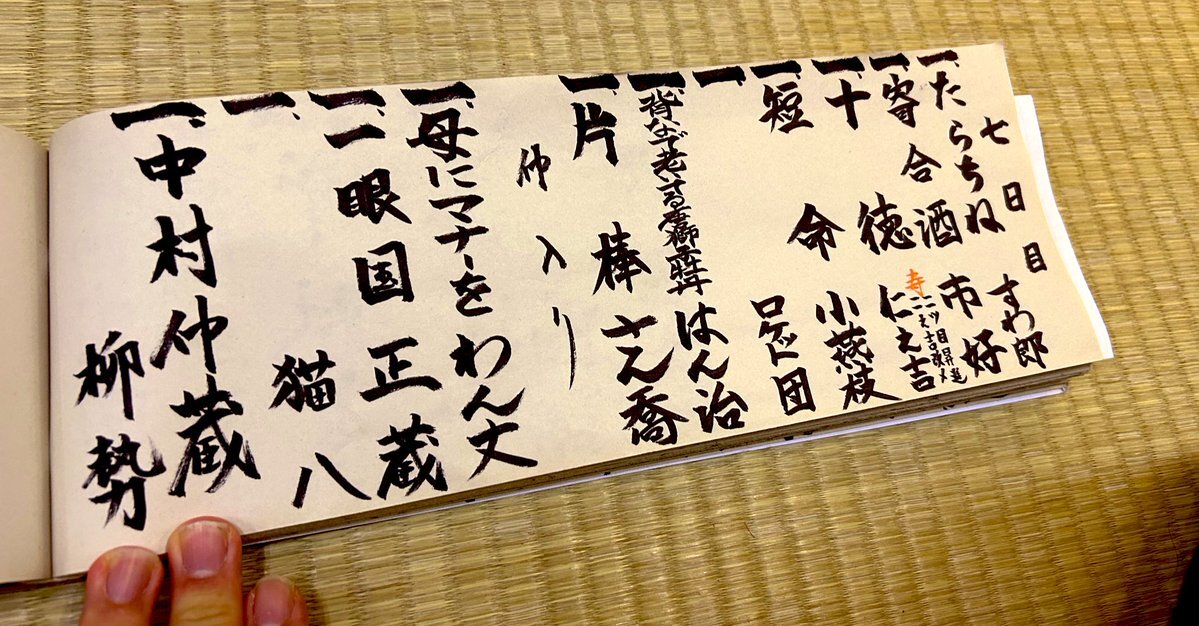 七日目
一、たらちね すわ郎
一、寄合酒 市好
一、十徳 寿 二ツ目昇進 仁之吉
一、短命 小茂枝
一、 ロケット団
一、背なで老いてる唐獅子牡丹 はん治
一、片棒 さん喬
仲入り
一、母にマナーを わん丈
一、一眼国 正蔵
一、 猫八
一、中村仲蔵 柳勢